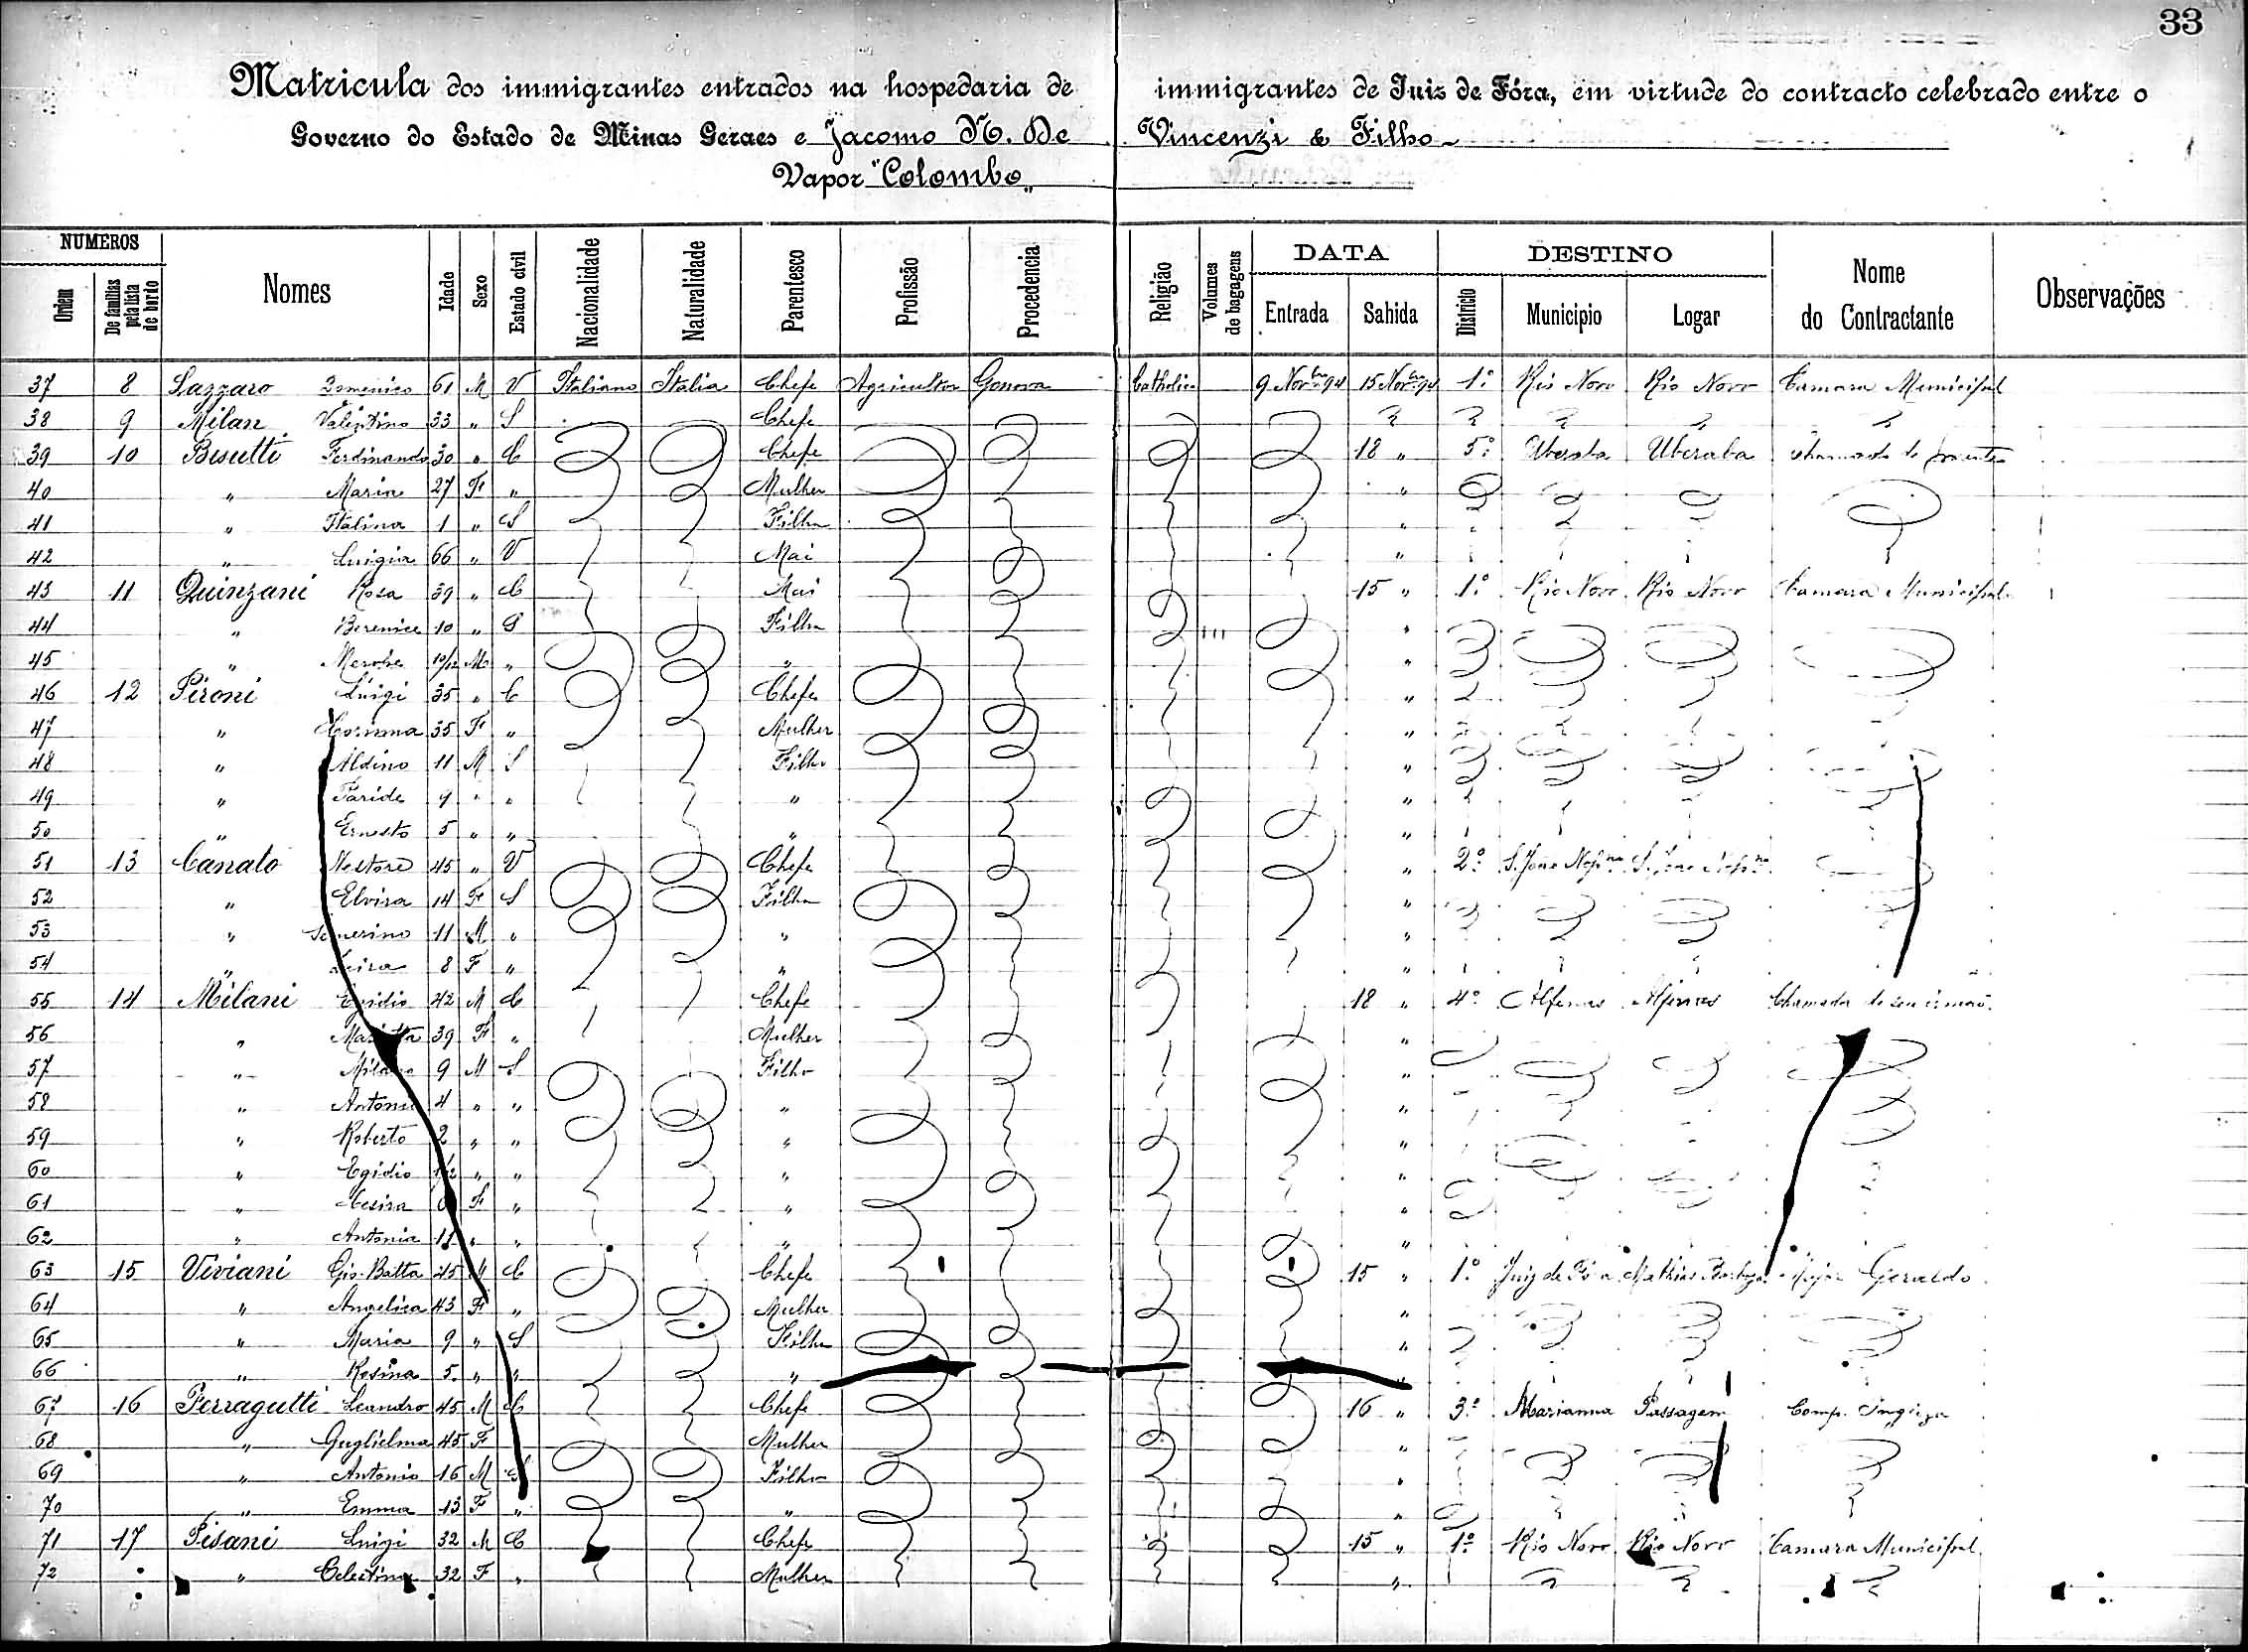 33
Matricula dos immigrantes entrados na hospedaria de immigrantes de Juiz de Fóra, em virtude do contracto celebrado entre o
Governo do Estado de Minas Geraes e Jacomo N. De Vincenzi & Filho
Vapor "Colombo"
NUMEROS DATA DESTINO
Ordem De familias pela lista de bordo Nomes Idade Sexo Estado civil Nacionalidade Naturalidade Parentesco Profissão Procedencia Religião Volumes de bagagens Entrada Sahida Districto Municipio Logar Nome do Contractante Observações
37 8 Lazzaro Domenico 61 M V Italiano Italia Chefe Agricultor Genova Catholica 9 Novbro 94 15 Novbro 94 1º Rio Novo Rio Novo Camara Municipal
38 9 Milan Valentino 33 " S Chefe
39 10 Bisutti Ferdinando 30 " C Chefe 18 " 5º Uberaba Uberaba chamado de parentes
40 " Maria 27 F " Mulher "
41 " Italina 1 " S Filha "
42 " Luigia 66 " V Mai "
43 11 Quinzani Rosa 39 " C Mai 15 " 1º Rio Novo Rio Novo Camara Municipal
44 " Berenice 10 " S Filha "
45 " 10/12 M " " "
46 12 Pironi Luigi 35 " C Chefe "
47 " Corinna 35 F " Mulher "
48 " Aldino 11 M S Filho "
49 " Paride 9 " " " "
50 " Ernesto 5 " " " "
51 13 Canato Nestore 45 " V Chefe " 2º S. João Nepno S. João Nepno
52 " Elvira 14 F S Filha "
53 " 11 M " " "
54 " 8 F " " "
55 14 Milani Egidio 42 M C Chefe 18 " 4º Alfenas Alfenas Chamada de seu irmão
56 " Marietta 39 F " Mulher "
57 " Milano 9 M S Filho "
58 " Antonio 4 " " " "
59 " Roberto 2 " " " "
60 " Egidio " " " "
61 " Cesira F " " "
62 " Antonia 11 " " " "
63 15 Viviani Gio. Batta 45 M C Chefe 15 " 1º Juiz de Fóra Mathias Barboza Major Geraldo
64 " Angelica 43 F " Mulher "
65 " Maria 9 " S Filha "
66 " Rosina 5 " " " "
67 16 Ferragutti Leandro 45 M C Chefe 16 " 3º Marianna Passagem Comp. Ingleza
68 " Guglielma 45 F Mulher "
69 " Antonio 16 M S Filho "
70 " Emma 13 F " " "
71 17 Pisani Luigi 32 M C Chefe 15 " 1º Rio Novo Rio Novo Camara Municipal
72 " Celestina 32 F " Mulher "